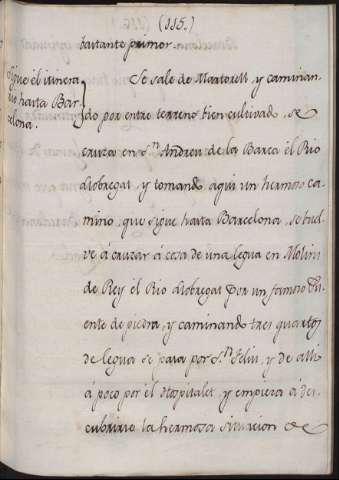 (115.)
bastante primor.
Sigue el itinera
rio hasta Bar
celona.
Se sale de Martorell, y caminan-
do por entre terreno bien cultivado, se
cruza en Sn. Andreu de la Barca el Rio
Llobregat, y tomando aqui un hermoso ca-
mino, que sigue hasta Barcelona, se buel-
ve á cruzar á cosa de una legua en Molins
de Rey el Rio Llobregat por un famoso Pu-
ente de piedra, y caminando tres quartos
de legua se pasa por Sn. Feliu, y de alli
á poco por el Hospitalet, y empieza á des-
cubrirse la hermosa situacion de